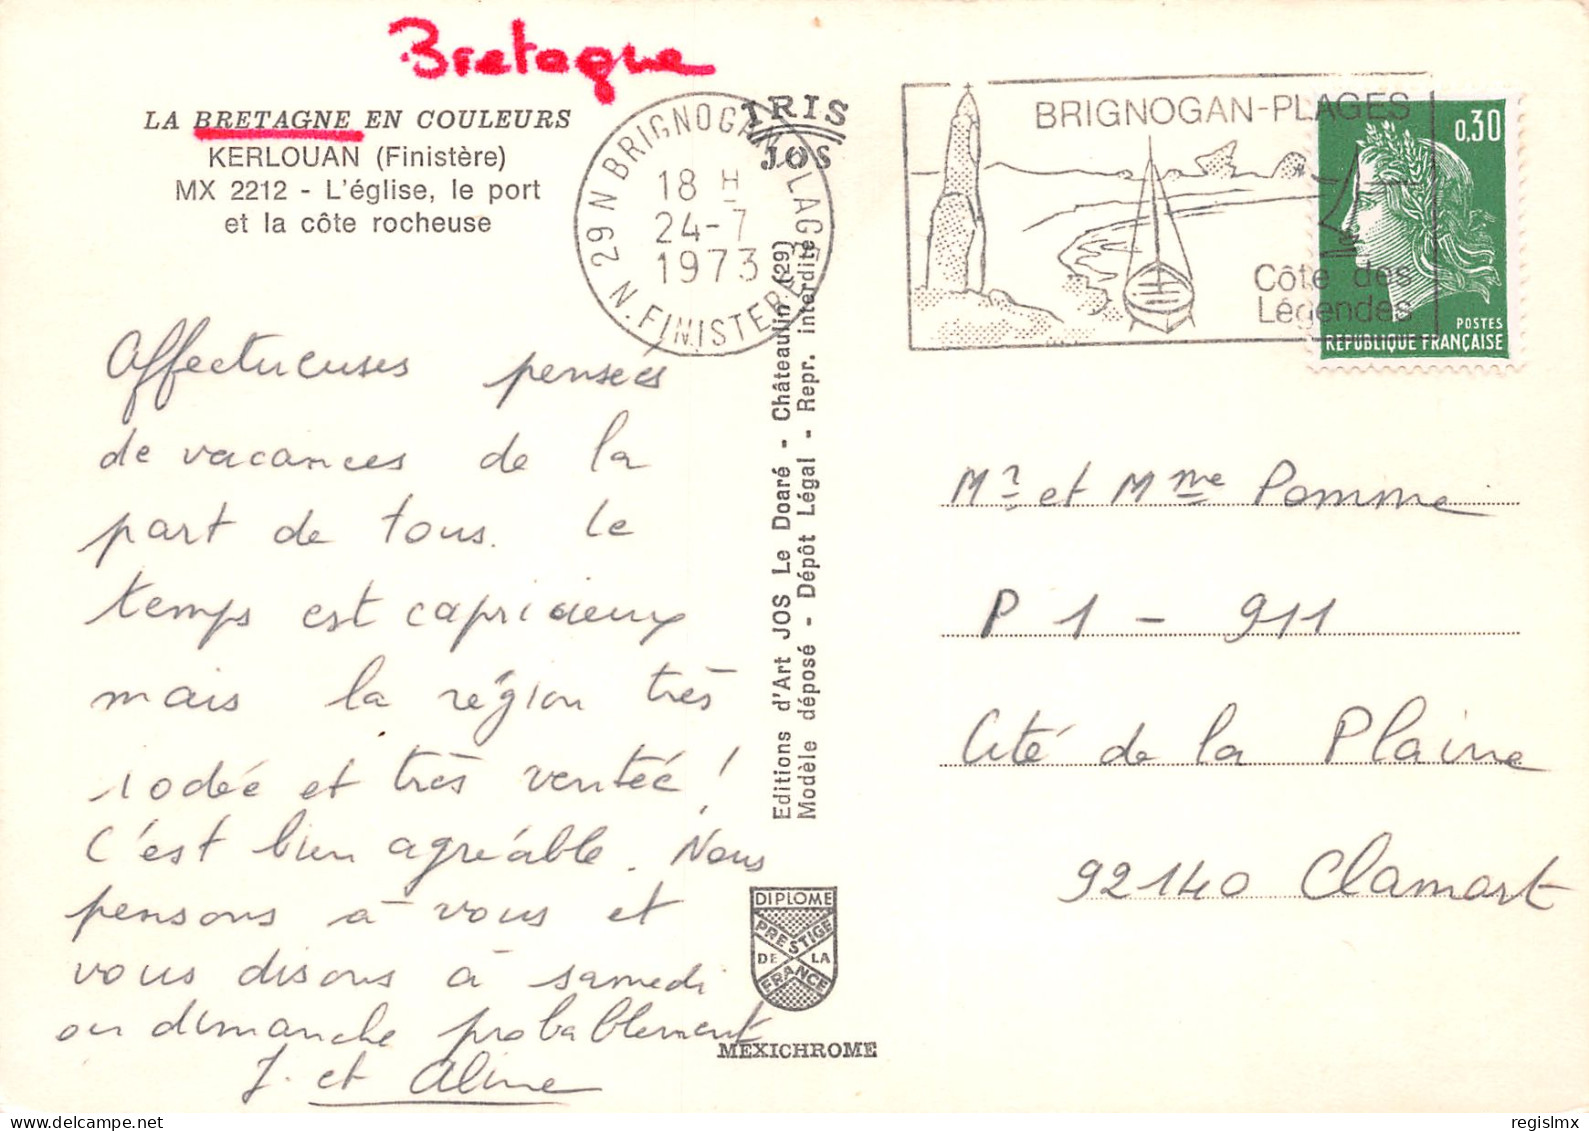 Bretagne
LA BRETAGNE EN COULEURS
KERLOUAN (Finistère)
MX 2212 - L'église, le port
et la côte rocheuse
IRIS
JOS
29 N BRIGNOGAN-PLAGES
18 H
24-7
1973
N. FINISTERE
BRIGNOGAN-PLAGES
Côte des
Légendes
0,30
POSTES
REPUBLIQUE FRANÇAISE
Affectueuses pensées
de vacances de la
part de tous. Le
temps est capricieux
mais la région très
iodée et très ventée !
C'est bien agréable. Nous
pensons à vous et
vous disons à samedi
ou dimanche probablement
J. et Aline
Editions d'Art JOS Le Doaré - Châteaulin (29)
Modèle déposé - Dépôt Légal - Repr. interdite
DIPLOME
PRESTIGE
DE LA
FRANCE
MEXICHROME
Mr et Mme Pomme
P 1 - 911
Cité de la Plaine
92140 Clamart
regislmx